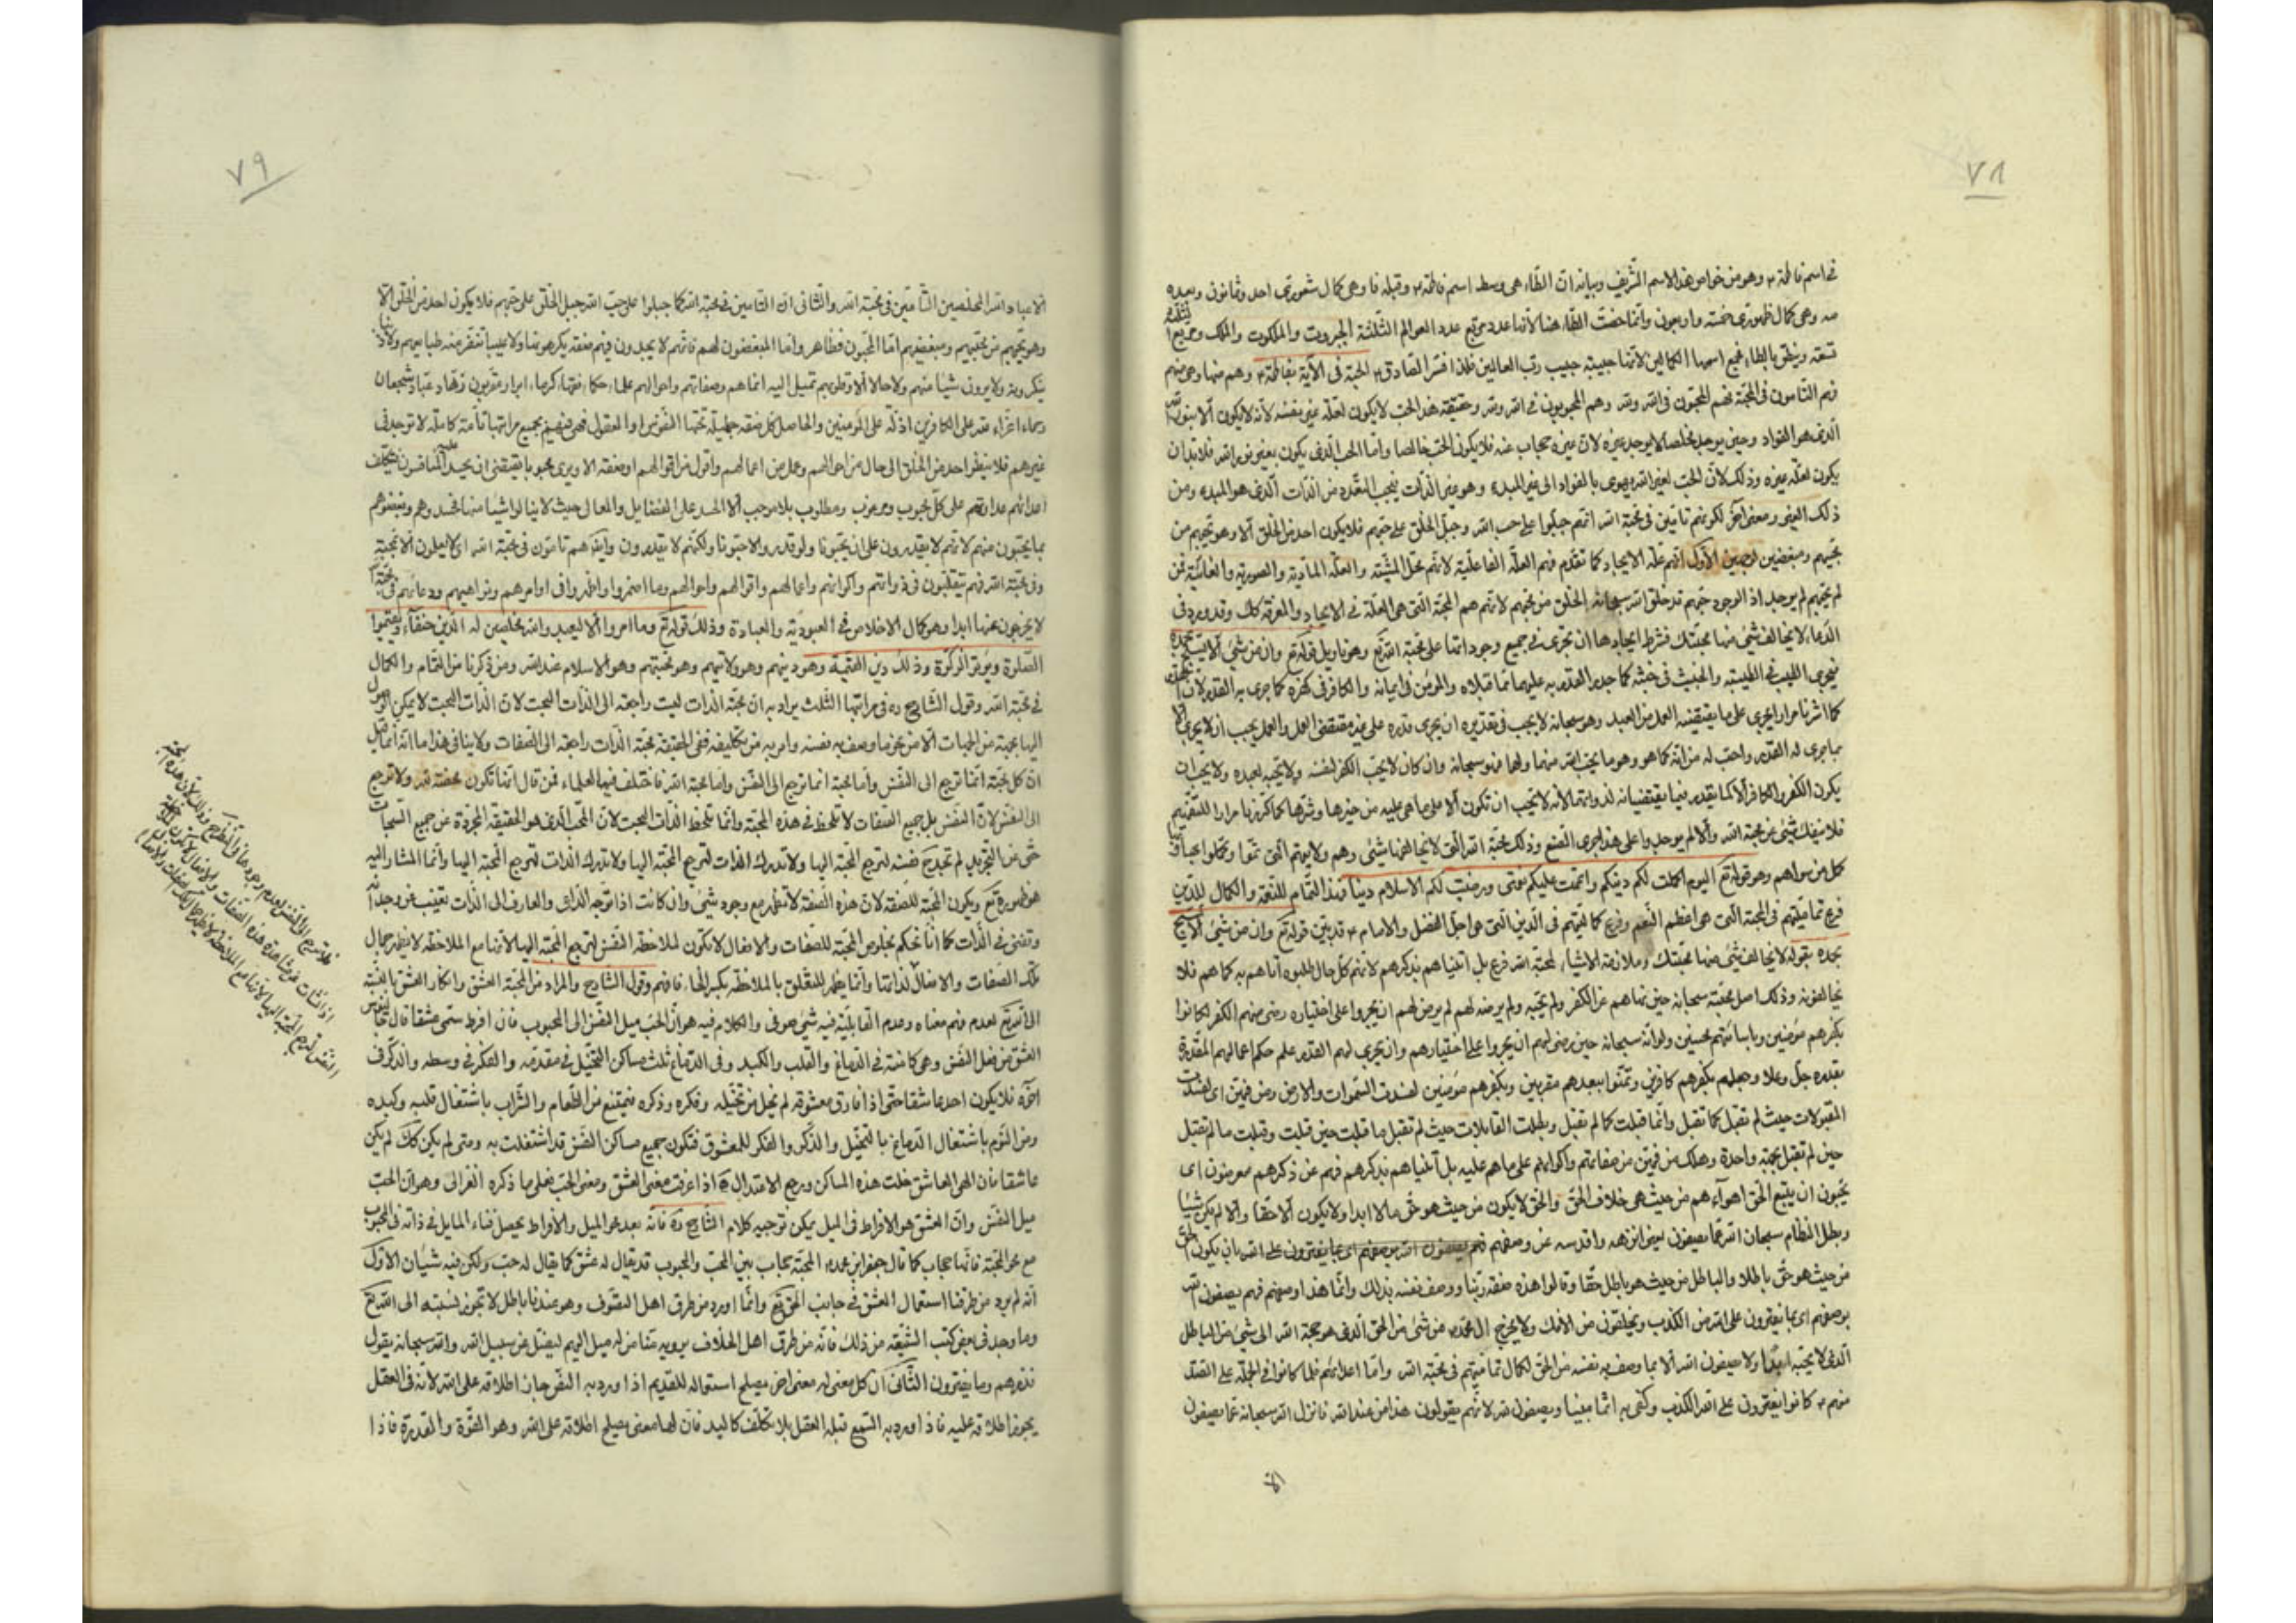 ٧٨
في اسم فاطمة ع وهو من خواص هذا الاسم الشريف وبيانه ان الطاء هي وسط اسم فاطمة ع وقبله فا وهي كمال شعوري احد وثمانون وبعده
مه وهي كمال ظهوري خمسة واربعون وانما خصت الطاء هنا لأنها عدد مربع عدد العوالم الثلثة الجبروت والملكوت والملك ومربع الثلثة
تسعة وينطق بالطاء فجمع اسمها الكمالين لانها حبيبة حبيب رب العالمين فلذا فسر الصادق ع الحبة في الآية بفاطمة ع وهم منها وهي منهم
فهم التامون في المحبة فهم المحبون في الله ولله وهم المحبوبون في الله ولله وحقيقة هذا الحب لا يكون لعلة غير نفسه لأنه لا يكون الا بنور الله
الذي هو الفؤاد وحين يوجد مخلصا لا يوجد غيره لان غيره حجاب عنه فلا يكون الحب خالصا واما الحب الذي يكون بغير نور الله فلا بد ان
يكون لعلة غيره وذلك لأن الحب لغير الله يهوى بالفؤاد الى غير المبدء وهو غير الذات فيجب التعدد من الذات الذي هو المبدء ومن
ذلك الغير ومعنى اخر لكونهم تامين في محبة الله انهم جبلوا على حب الله وجبل الخلق على حبهم فلا يكون احد من الخلق الا وهو يحبهم من
محبيهم ومبغضيهم لوجهين الاول انهم علة الايجاد كما تقدم فهم العلة الفاعلية لانهم محل المشية والعلة المادية والصورية والغائية فمن
لم يحبهم لم يوجد اذ الوجود حبهم قد خلق الله سبحانه الخلق من محبتهم لانهم هم المحبة التي هي العلة في الايجاد والمعرفة كك وقد ورد في
الدعاء لا يخالف شئ منها محبتك فشرط ايجادها ان تجرى في جميع وجوداتها على محبة الله تع وهو تاويل قوله تع وان من شئ الا يسبح بحمده
فيجري الطيب في الطيبة والخبيث في خبثه كما جرى القدر به عليهما بما قبلاه والمؤمن في ايمانه والكافر في كفره كما جرى به القدر لأن القدر
كما اشرنا مرارا يجري على ما يقتضيه العمل من العبد وهو سبحانه لا يجب في تقديره ان يجرى قدره على غير مقتضى العمل والعمل يجب ان لا يجرى الا
بما جرى له القدر واحب له من انه كما هو وهو ما يحب الله منهما ولهما فهو سبحانه وان كان لا يحب الكفر لنفسه ولا يحبه لعبده ولا يحب ان
يكون الكفر والكافر الا كما يقدر فيما يقتضيانه لذواتهما لأنه لا يحب ان تكون الا على ما هي عليه من خيرها وشرها كما كررنا مرارا للتفهيم
فلا ينفك شئ عن محبة الله والا لم يوجد وعلى هذا جرى الصنع وذلك محبة الله التي لا يخالفها شئ وهم ولايتهم التي تمموا وكملوا بها
كل من سواهم وهو قوله تع اليوم اكملت لكم دينكم واتممت عليكم نعمتى ورضيت لكم الاسلام دينا فهذا التمام للنعمة والكمال للدين
فرع تماميتهم في المحبة التي هي اعظم النعم وفرع كماليتهم في الدين التي هي اجل الفضل والامام ع قد بين قوله تع وان من شئ الا يسبح
بحمده بقوله لا يخالف شئ منها محبتك وملازمة الاشياء لمحبة الله فرع بل اتيناهم بذكرهم لانهم كل حال طلبوه اتاهم به كما هم فلا
يخالفونه وذلك اصل محبته سبحانه حين نهاهم عن الكفر ولم يحبه ولم يرضه لهم لم يرض لهم ان يجروا على اختياره رضى منهم الكفر لكانوا
بكفرهم مؤمنين وباساءتهم محسنين ولو انه سبحانه حين رضى لهم ان يجروا على اختيارهم وان يجري لهم القدر على حكم اعمالهم المقدرة
بقدره جل وعلا وجعلهم بكفرهم كافرين وتمنوا ببعدهم مقربين وبكفرهم مؤمنين لفسدت السموات والارض ومن فيهن اى لفسدت
المقبولات حيث لم تقبل كما تقبل وانما قبلت كما لم تقبل وبطلت القابلات حيث لم تقبل ما قبلت حين قبلت وقبلت ما لم تقبل
حين لم تقبل بمحبة واحدة وهلك من فيهن من صفاتهم واكوانهم على ما هم عليه بل اتيناهم بذكرهم فهم عن ذكرهم معرضون اى
يحبون ان يتبع الحق اهواءهم من حيث هى خلاف الحق والحق لا يكون من حيث هو حق مالا ابدا ولا يكون الا حقا والا لم يكن شيئا
وبطل النظام سبحان الله عما يصفون يعنى انزهه واقدسه عن وصفهم فهم يصفون الله بوصفهم اى بما يفترون على الله بان يكون الحق
من حيث هو حق باطلا والباطل من حيث هو باطل حقا وقالوا هذه صفة ربنا ووصف نفسه بذلك وانما هذا وصفهم فهم يصفون الله
بوصفهم اى بما يفترون على الله من الكذب ويختلقون من الافك ولا يخرج ال محمد ص من شئ من الحق الذى هو محبة الله الى شئ من الباطل
الذى لا يحبه ابدا ولا يصفون الله الا بما وصف به نفسه من الحق لكمال تماميتهم في محبة الله واما اعداؤهم فلما كانوا في الجملة على الضد
منهم ع كانوا يفترون على الله الكذب وكفى به اثما مبينا ويصفون الله لانهم يقولون هذا من عند الله فانزل الله سبحانه عما يصفون
الا
٧٩
الا عباد الله المخلصين التامين في محبة الله والثانى ان التامين في محبة الله كما جبلوا على حب الله جبل الخلق على حبهم فلا يكون احد من الخلق الا
وهو يحبهم من محبيهم ومبغضيهم اما المحبون فظاهر واما المبغضون لهم فانهم لا يجدون فيهم صفة يكرهونها ولا عيبا تنفر منه طباعهم ولا ذنبا
ينكرونه ولا يرون شيئا منهم ولا حالا الا وقلوبهم تميل اليه انما هم وصفاتهم واحوالهم علماء حكماء فقهاء كرماء ابرار مقربون زهاد عباد شجعان
رحماء اعزاء على الكافرين اذلة على المؤمنين والحاصل كل صفة جميلة تحبها النفوس او العقول فهى فيهم بجميع مراتبها تامة كاملة لا توجد في
غيرهم فلا ينظر احد من الخلق الى حال من احوالهم وعمل من اعمالهم وقول من اقوالهم او صفة الا ويرى محبوبا يقتضى ان
اعدائهم عداوتهم على كل محبوب ومرغوب ومطلوب بلا موجب الا الحسد على الفضايل والمعالى حيث لا ينالوا شيئا منها فحسدوهم وبغضوهم
بما يحبون منهم لانهم لا يقدرون على ان يحبونا ولو قدروا لاحبونا ولكنهم لا يقدرون وايضا هم تامون في محبة الله اى لا يعملون الا بمحبته
وفى محبة الله فهم يتقلبون في ذواتهم واكوانهم واعمالهم واقوالهم واحوالهم وما اضمروا واظهروا في اوامرهم ونواهيهم ودعائهم في محبته
لا يخرجون عنها ابدا وهو كمال الاخلاص في العبودية والعبادة وذلك قوله تع وما امروا الا ليعبدوا الله مخلصين له الدين حنفاء ويقيموا
الصلوة ويؤتوا الزكوة وذلك دين القيمة وهو دينهم وهو ولايتهم وهو محبتهم وهو الاسلام عند الله ومن ذكرنا من التمام والكمال
في محبة الله وقول الشارح ره في مراتبها الثلث يراد به ان محبة الذات ليست راجعة الى الذات البحت لان الذات البحت لا يمكن الوصول
اليها بجهة من الجهات الا من نحو ما وصف به نفسه وامر به من تكاليفه ففى الحقيقة محبة الذات راجعة الى الصفات ولا ينافى هذا ما انه انما قيل
ان كل محبة انما ترجع الى النفس واما محبة انما ترجع الى النفس واما محبة الله فاختلف فيها العلماء فمن قال انها تكون محضة لله ولا ترجع
الى النفس لان النفس بل جميع الصفات لا تلحظ في هذه المحبة وانما تلحظ الذات البحت لان المحب الذى هو الحقيقة المجردة عن جميع السبحات
حتى عن التجريد لم تجد نفسه لترجع المحبة اليها ولا تدرك الذات لترجع المحبة اليها ولا تدرك الذات لترجع المحبة اليها وانما المشار اليه
هو ظهوره تع ويكون المحبة للصفة لان هذه الصفة لا تظهر مع وجود شئ وان كانت اذا توجه الذاكر والعارف الى الذات تغيب عن وجدانه
وتفنى في الذات كما انا نحكم بخلوص المحبة للصفات والافعال لا تكون لملاحظة النفس لترجع المحبة اليها لأنها مع الملاحظة لا يظهر جمال
تلك الصفات والافعال لذاتها وانما يظهر للتعلق بالملاحظ بكسر الحاء فافهم وقول الشارح والمراد من المحبة العشق وانكار العشق بالنسبة
الى الله تع لعدم فهم معناه وعدم القابلية فيه شئ صوفى والكلام فيه هو ان الحب ميل النفس الى المحبوب فان افرط سمى عشقا قال جالينوس
العشق من فعل النفس وهى كامنة في الدماغ والقلب والكبد وفى الدماغ ثلث مساكن التخيل في مقدمه والفكر في وسطه والذكر في
اخره فلا يكون احد عاشقا حتى اذا فارق معشوقه لم يخل من تخيله وفكره وذكره فيمتنع من الطعام والشراب باشتغال قلبه وكبده
ومن النوم باشتغال الدماغ بالتخيل والذكر والفكر للمعشوق فتكون جميع مساكن النفس قد اشتغلت به ومتى لم يكن كك لم يكن
عاشقا فان الهى العاشق خلت هذه المساكن ورجع الاعتدال اذا عرفت معنى العشق ومعنى الحب فعلى ما ذكره الغزالى وهو ان الحب
ميل النفس وان العشق هو الافراط في الميل يمكن توجيه كلام الشارح ره فانه بعد محو الميل والافراط يحصل فناء المايل في ذاته في المحبوب
مع محو المحبة فانها حجاب كما قال جعفر ابن محمد ع المحبة حجاب بين المحب والمحبوب قد يقال له عشق كما يقال له حب ولكن فيه شيئان الاول
انه لم يرد من طرقنا استعمال العشق في جانب الحق تع وانما اورد من طرق اهل التصوف وهو عندنا باطل لا تجوز نسبته الى الله تع
وما وجد في بعض كتب الشيعة من ذلك فانه من طرق اهل الخلاف يرويه منا من له ميل اليهم ليضل عن سبيل الله والله سبحانه يقول
فذرهم وما يفترون الثانى ان كل معنى له معنى اخر يصلح استعماله للقديم اذا ورد به النص جاز اطلاقه على الله لانه في العقل
يجوز اطلاقه عليه فاذا ورد به السمع قبله العقل بلا تكلف كاليد فان لها معنى يصلح اطلاقه على الله وهو القوة والقدرة فاذا